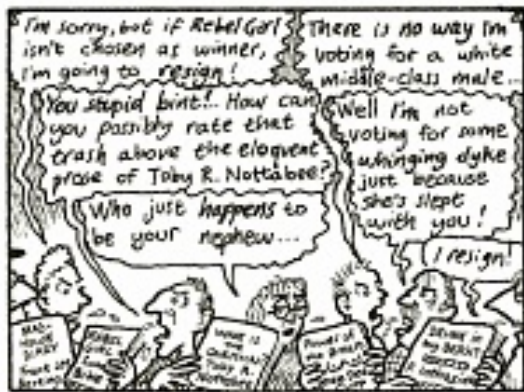 I'm sorry, but if Rebel Girl
isn't chosen as winner,
I'm going to resign!
There is no way I'm
voting for a white
middle-class male...
You stupid bint!.. How can
you possibly rate that
trash above the eloquent
prose of Toby R. Nottabee?
Well I'm not
voting for some
whinging dyke
just because
she's slept
with you!
Who just happens to
be your nephew...
I resign!
MAD-
HOUSE
DIARY
REBEL
GIRL
TOBY R.